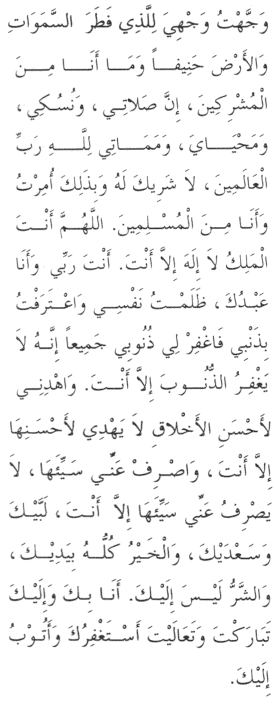 وَجَّهْتُ وَجْهِيَ لِلَّذِي فَطَرَ السَّمَوَاتِ
وَالْأَرْضَ حَنِيفاً وَمَا أَنَا مِنَ
الْمُشْرِكِينَ، إِنَّ صَلَاتِي، وَنُسُكِي،
وَمَحْيَايَ، وَمَمَاتِي لِلَّهِ رَبِّ
الْعَالَمِينَ، لَا شَرِيكَ لَهُ وَبِذَلِكَ أُمِرْتُ
وَأَنَا مِنَ الْمُسْلِمِينَ. اللَّهُمَّ أَنْتَ
الْمَلِكُ لَا إِلَهَ إِلَّا أَنْتَ. أَنْتَ رَبِّي وَأَنَا
عَبْدُكَ، ظَلَمْتُ نَفْسِي وَاعْتَرَفْتُ
بِذَنْبِي فَاغْفِرْ لِي ذُنُوبِي جَمِيعاً إِنَّهُ لَا
يَغْفِرُ الذُّنُوبَ إِلَّا أَنْتَ. وَاهْدِنِي
لِأَحْسَنِ الْأَخْلَاقِ لَا يَهْدِي لِأَحْسَنِهَا
إِلَّا أَنْتَ، وَاصْرِفْ عَنِّي سَيِّئَهَا، لَا
يَصْرِفُ عَنِّي سَيِّئَهَا إِلَّا أَنْتَ، لَبَّيْكَ
وَسَعْدَيْكَ، وَالْخَيْرُ كُلُّهُ بِيَدِيْكَ،
وَالشَّرُّ لَيْسَ إِلَيْكَ. أَنَا بِكَ وَإِلَيْكَ
تَبَارَكْتَ وَتَعَالَيْتَ أَسْتَغْفِرُكَ وَأَتُوبُ
إِلَيْكَ.